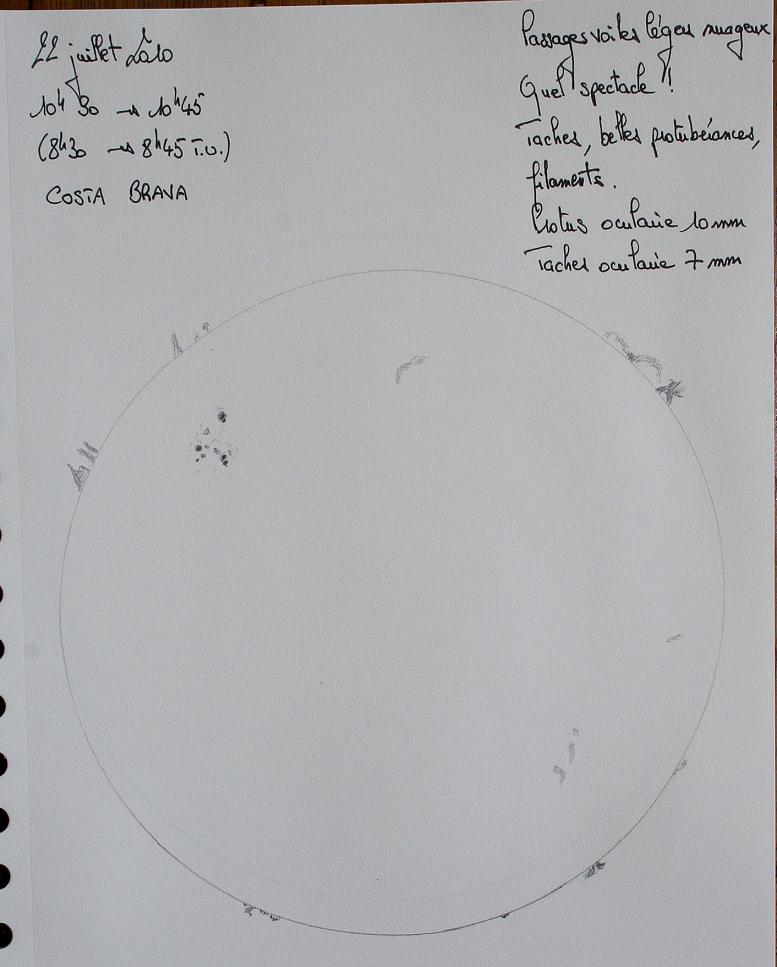 22 juillet 2010
10h30 → 10h45
(8h30 → 8h45 T.U.)
COSTA BRAVA
Passages voiles légers nuageux
Quel spectacle !
Taches, belles protubérances,
filaments.
Protus oculaire 10mm
Taches oculaire 7mm